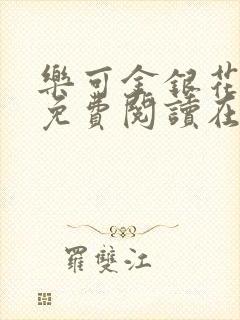 樂可金銀花
免費閱讀在
羅雙江